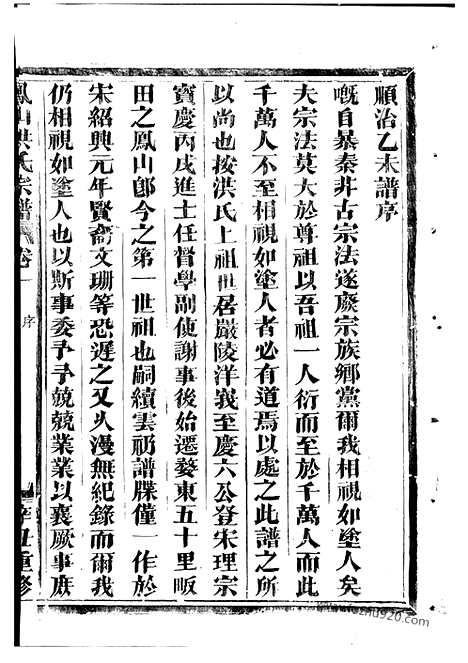 順治乙未譜序
嘅自暴秦非古宗法遂廢宗族鄉黨爾我相視如塗人矣
夫宗法莫大於尊祖以吾祖一人衍而至於千萬人而此
千萬人不至相視如塗人者必有道焉以處之此譜之所
以尚也按洪氏上祖世居嚴陵洋峩至慶六公登宋理宗
寳慶丙戌進士任督學副使謝事後始遷婺東五十里畈
田之鳳山郎今之第一世祖也嗣續雲礽譜牒僅一作於
宋紹興元年賢裔文珊等恐遲之又久漫無紀錄而爾我
仍相視如塗人也以斯事委予予兢兢業業以襄厥事庶
鳳山洪氏宗譜 卷一 序 辛丑重修
www.fozhu920.com